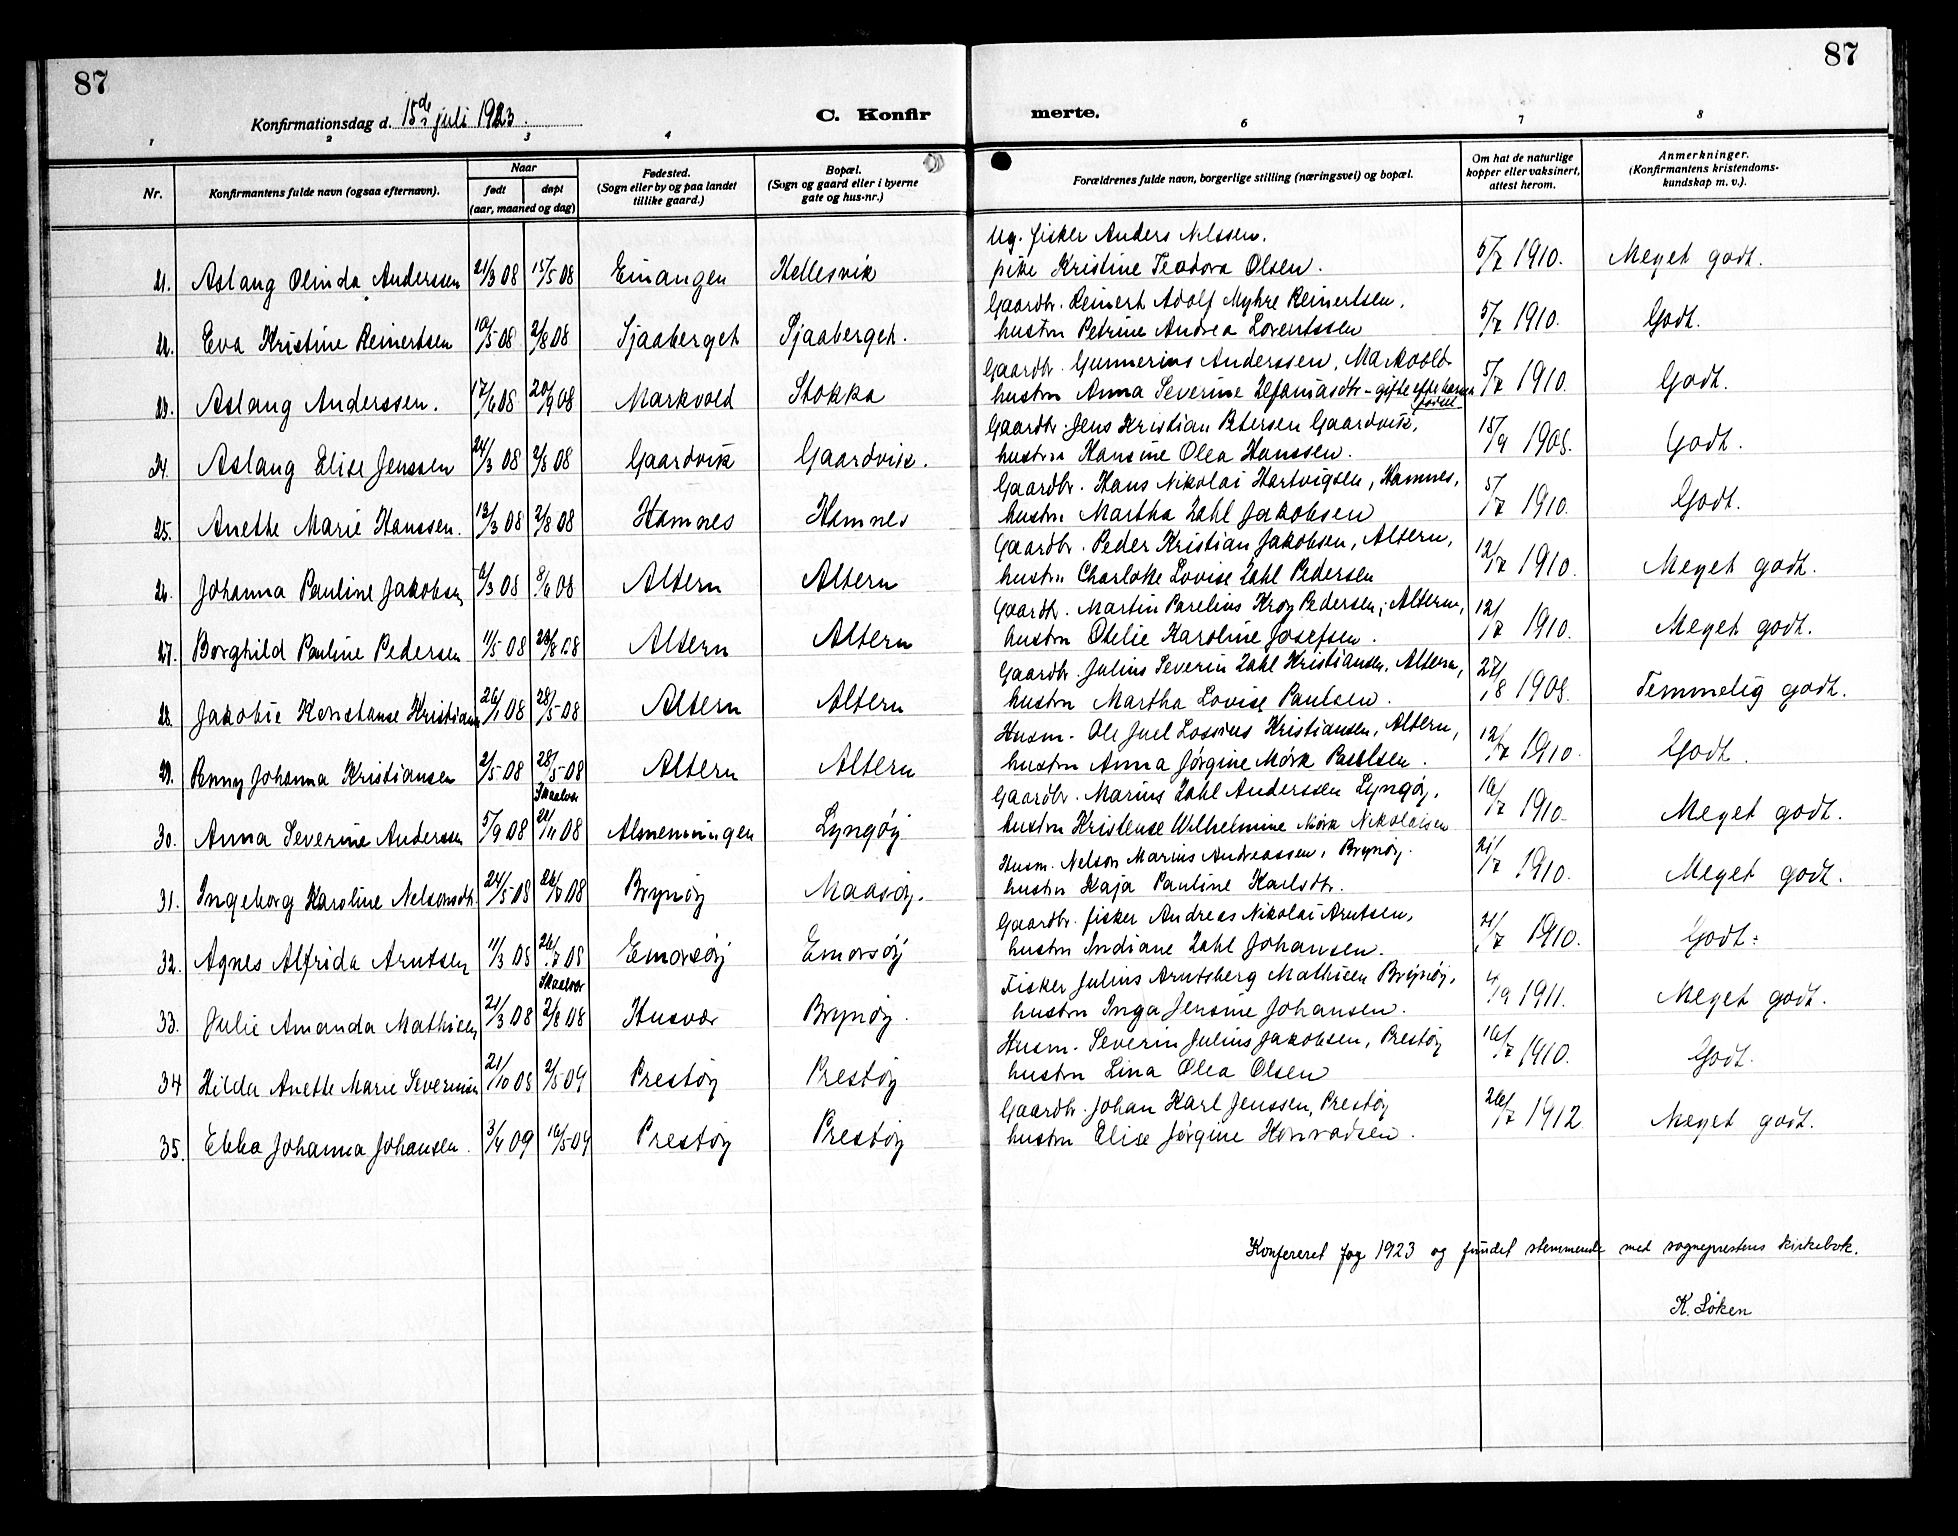 87
87
Konfirmationsdag d. 15de juli 1923.
C. Konfir
merte.
1 2 3 4 6 7 8
Nr.
Konfirmantens fulde navn (ogsaa efternavn).
Naar
født
døpt
(aar, maaned og dag)
Fødested.
(Sogn eller by og paa landet
tillike gaard.)
Bopæl.
(Sogn og gaard eller i byerne
gate og hus-nr.)
Forældrenes fulde navn, borgerlige stilling (næringsvei) og bopæl.
Om hat de naturlige
kopper eller vaksinert,
attest herom.
Anmerkninger.
(Konfirmantens kristendoms-
kundskap m. v.).
Ug. fisker Anders Nilssen.
21. Aslaug Olinda Anderssen 21/3 08 15/5 08 Einangen Hellesvik pike Kristine Teodora Olsen. 5/7 1910. Meget godt.
Gaardbr. Reinert Adolf Myhre Reinertsen,
22. Eva Kristine Reinertsen 10/5 08 2/8 08 Sjaaberget Sjaaberget. hustru Petrine Andrea Lorentssen 5/7 1910. Godt.
Gaardbr. Gunnerius Anderssen, Markvold
23. Aslaug Anderssen. 17/6 08 20/9 08 Markvold Stokka hustru Anna Severine Zefaniasdtr - gifte efter barnets 5/7 1910. Godt.
fødsel
Gaardbr. Jens Kristian Petersen Gaardvik,
24. Aslaug Elise Jenssen 24/3 08 2/8 08 Gaardvik Gaardvik. hustru Hansine Olea Hanssen. 15/9 1908. Godt.
Gaardbr. Hans Nikolai Hartvigsen, Hamnes,
25. Anethe Marie Hanssen. 13/3 08 2/8 08 Hamnes Hamnes hustru Martha Zahl Jakobsen 5/7 1910. Godt.
Gaardbr. Peder Kristian Jakobsen, Altern,
26. Johanna Pauline Jakobsen 6/3 08 8/6 08 Altern Altern hustru Charlotte Lovise Zahl Pedersen 12/7 1910. Meget godt.
Gaardbr. Martin Parelius Krøy Pedersen, Altern,
27. Borghild Pauline Pedersen 11/5 08 23/8 08 Altern Altern hustru Otelie Karoline Josefsen. 12/7 1910. Meget godt.
Gaardbr. Julius Severin Zahl Kristiansen, Altern,
28. Jakobie Konstanse Kristians 26/1 08 28/5 08 Altern Altern hustru Martha Lovise Paulsen. 27/8 1908. Temmelig godt.
Husm. Ole Juel Lossius Kristiansen, Altern,
29. Penny Johanna Kristiansen 2/5 08 28/5 08 Altern Altern hustru Anna Jørgine Mørk Paulsen. 12/7 1910. Godt.
Skaalvær
Gaardbr. Marius Zahl Anderssen Lyngøy,
30. Anna Severine Anderssen 5/9 08 21/11 08 Almenningen Lyngøy hustru Kristense Wilhelmine Mørk Nikolaisen 16/7 1910. Meget godt.
Husm. Nelson Marius Andreassen, Brynøy.
31. Ingeborg Karoline Nelsonsdtr. 24/5 08 26/7 08 Brynøy Maasøy. hustru Kaja Pauline Karlsdtr. 21/7 1910. Meget godt.
Gaardbr. fisker Andreas Nikolai Arntsen,
32. Agnes Alfrida Arntsen 11/3 08 26/7 08 Emorsøy Emorsøy hustru Indiane Zahl Johansen. 21/7 1910. Godt.
Skaalvær
Fisker Julius Arntsberg Mathisen Brynøy,
33. Julie Amanda Mathisen 21/3 08 2/8 08 Husvær Brynøy. hustru Inga Jensine Johansen. 4/9 1911. Meget godt.
Husm. Severin Julius Jakobsen, Prestøy
34 Hilda Anethe Marie Severinsen 21/10 08 2/5 09 Prestøy Prestøy hustru Lina Olea Olsen 16/7 1910. Godt.
Gaardbr. Johan Karl Jenssen, Prestøy
35. Ebba Johanna Johansen. 3/4 09 16/5 09 Prestøy Prestøy hustru Elise Jørgine Konradsen. 26/7 1912. Meget godt.
Konfereret for 1923 og fundet stemmende med sogneprestens kirkebok.
K. Løken